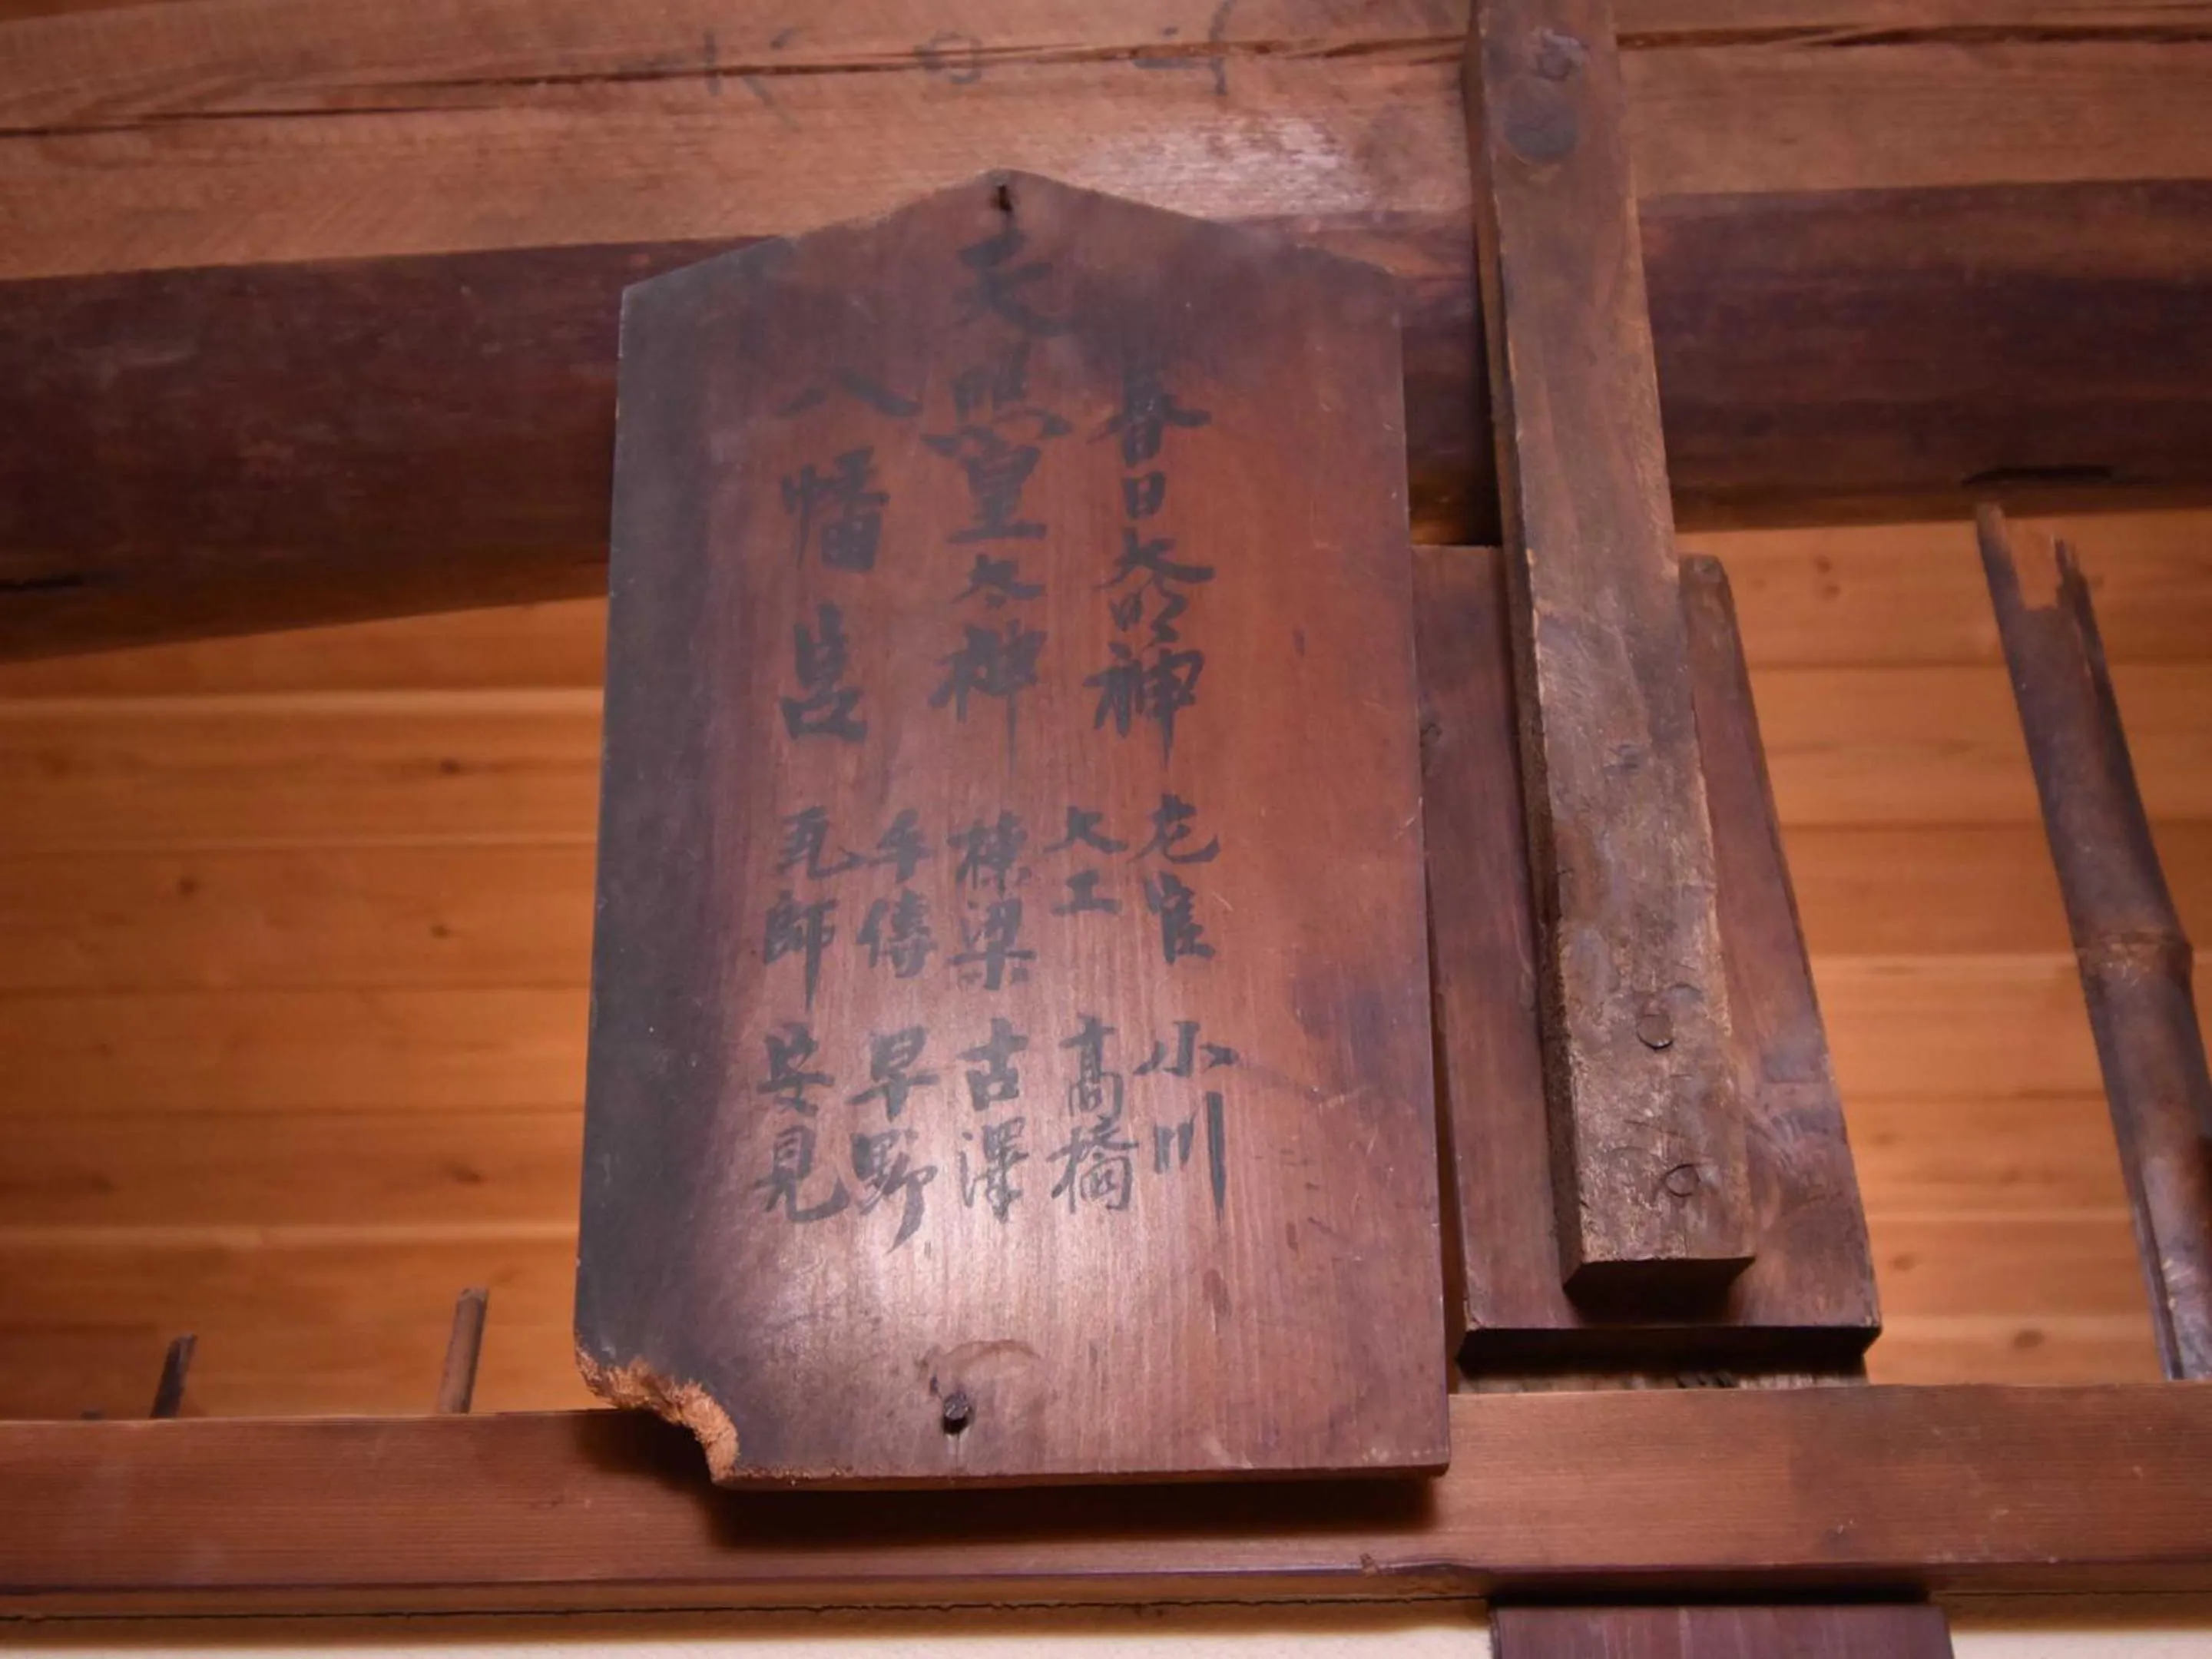 春日大明神
天照皇太神
八幡宮
左官 小川
大工 高橋
棟梁 古澤
手傳 早野
瓦師 安見